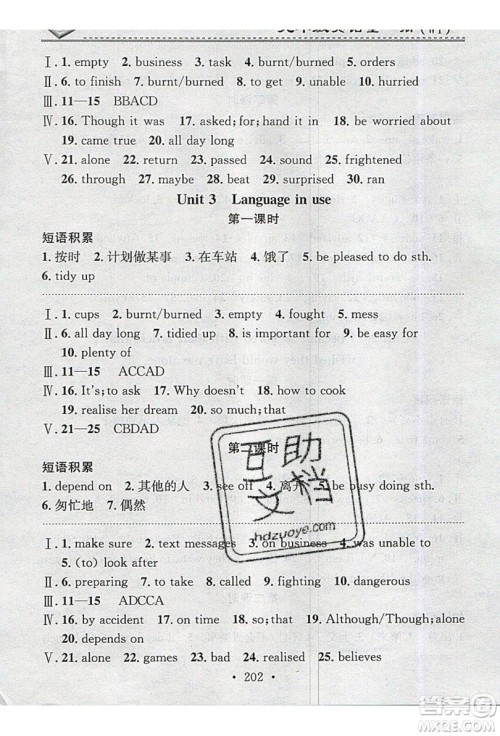 Ⅰ. 1. empty 2. business 3. task 4. burnt/burned 5. orders
Ⅱ. 6. to finish 7. burnt/burned 8. unable 9. off 10. return
Ⅲ. 11—15 BBACD
Ⅳ. 16. Though it was 17. asked;for;hand it in 18. be worried about
19. came true 20. all day long
Ⅴ. 21. alone 22. return 23. passed 24. sound 25. frightened
26. through 27. maybe 28. beat 29. surprised 30. ran
Unit 3 Language in use
第一课时
短语积累
1. 按时 2. 计划做某事 3. 在车站 4. 饿了 5. be pleased to do sth.
6. tidy up
Ⅰ. 1. cups 2. burnt/burned 3. empty 4. fought 5. mess
Ⅱ. 6. all day long 7. tidied up 8. is important for 9. be easy for
10. plenty of
Ⅲ. 11—15 ACCAD
Ⅳ. 16. It's;to take 17. Why doesn't 18. how to cook
19. realise her dream 20. so much;that
Ⅴ. 21—25 CBDAD
第二课时
短语积累
1. depend on 2. 其他的人 3. see off 4. 离开 5. be busy doing sth.
6. 匆忙地 7. 偶然
Ⅰ. 1. make sure 2. text messages 3. on business 4. was unable to
5. (to) look after
Ⅱ. 6. preparing 7. to take 8. called 9. fighting 10. dangerous
Ⅲ. 11—15 ADCCA
Ⅳ. 16. by accident 17. on time 18. so;that 19. Although/Though;alone
20. depends on
Ⅴ. 21. alone 22. games 23. bad 24. realised 25. believes
202
互助文档
hdzuoye.com
答案圈